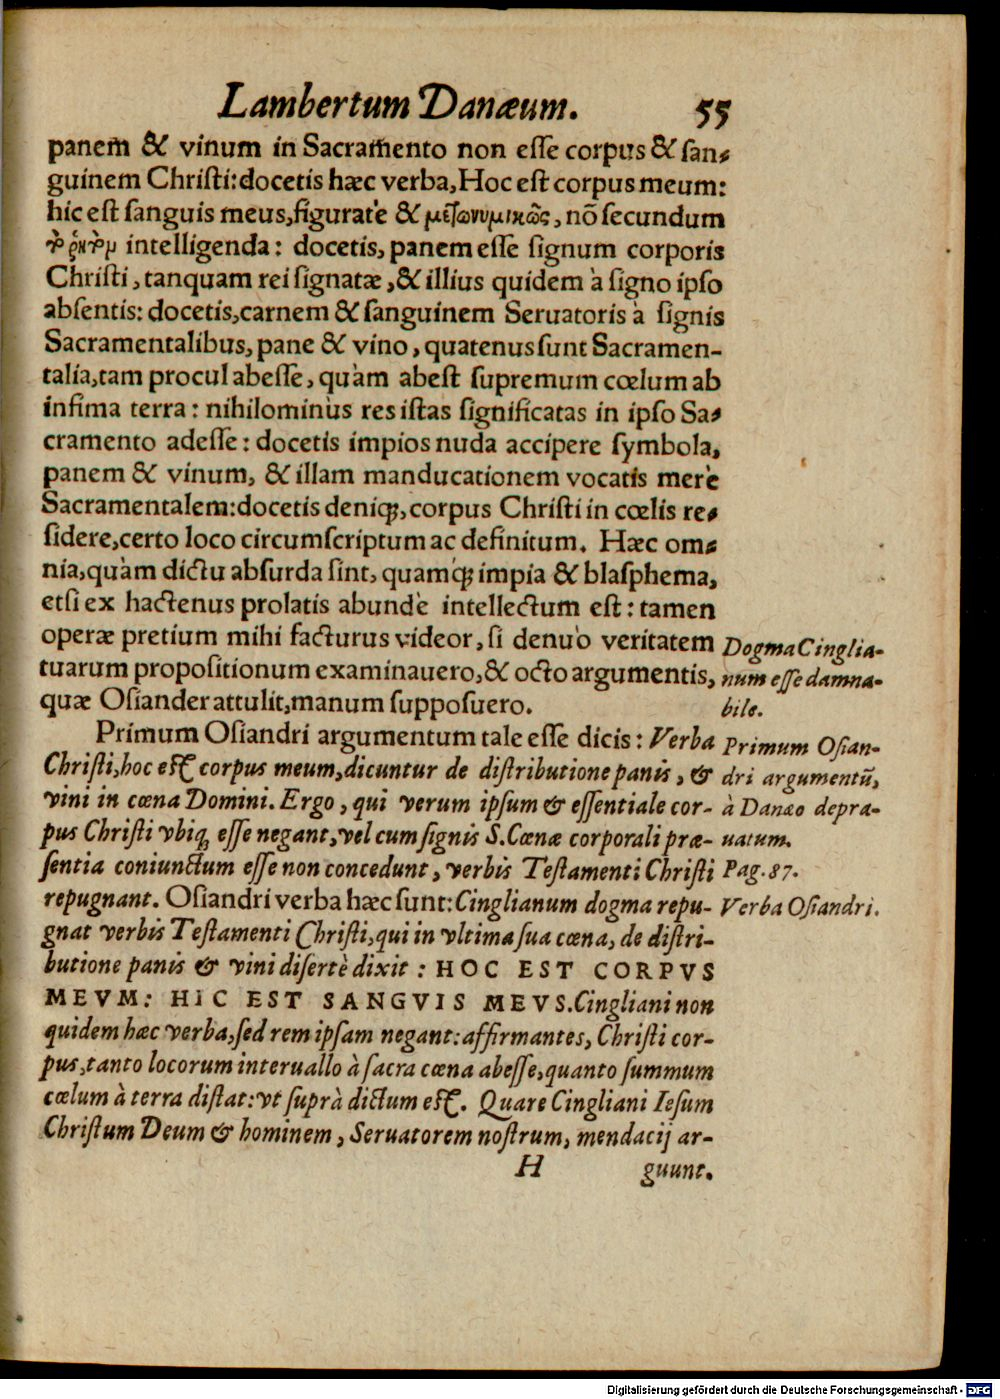 Lambertum Danæum. 55
panem & vinum in Sacramento non eſſe corpus & ſan-
guinem Chriſti: docetis hæc verba, Hoc eſt corpus meum:
hic eſt ſanguis meus, figuratè & μετωνυμικῶς, nõ ſecundum
τὸ ῥητὸν intelligenda: docetis, panem eſſe ſignum corporis
Chriſti, tanquam rei ſignatæ, & illius quidem à ſigno ipſo
abſentis: docetis, carnem & ſanguinem Seruatoris à ſignis
Sacramentalibus, pane & vino, quatenus ſunt Sacramen-
talia, tam procul abeſſe, quàm abeſt ſupremum cœlum ab
infima terra: nihilominùs res iſtas ſignificatas in ipſo Sa-
cramento adeſſe: docetis impios nuda accipere ſymbola,
panem & vinum, & illam manducationem vocatis merè
Sacramentalem: docetis deniq́;, corpus Chriſti in cœlis re-
ſidere, certo loco circumſcriptum ac definitum. Hæc om-
nia, quàm dictu abſurda ſint, quamq́; impia & blaſphema,
etſi ex hactenus prolatis abundè intellectum eſt: tamen
operæ pretium mihi facturus videor, ſi denuò veritatem
tuarum propoſitionum examinauero, & octo argumentis,
quæ Oſiander attulit, manum ſuppoſuero.
Dogma Cinglia-
num eſſe damna-
bile.
Primum Oſiandri argumentum tale eſſe dicis: Verba
Chriſti, hoc eſt corpus meum, dicuntur de diſtributione panis, &
vini in cœna Domini. Ergo, qui verum ipſum & eſſentiale cor-
pus Chriſti vbiq; eſſe negant, vel cum ſignis S. Cœnæ corporali præ-
ſentia coniunctum eſſe non concedunt, verbis Teſtamenti Chriſti
repugnant. Oſiandri verba hæc ſunt: Cinglianum dogma repu-
gnat verbis Teſtamenti Chriſti, qui in vltima ſua cœna, de diſtri-
butione panis & vini diſertè dixit: HOC EST CORPVS
MEVM: HIC EST SANGVIS MEVS. Cingliani non
quidem hæc verba, ſed rem ipſam negant: affirmantes, Chriſti cor-
pus, tanto locorum interuallo à ſacra cœna abeſſe, quanto ſummum
cœlum à terra diſtat: vt ſuprà dictum eſt. Quare Cingliani Ieſum
Chriſtum Deum & hominem, Seruatorem noſtrum, mendacij ar-
Primum Oſian-
dri argumentũ,
à Danæo depra-
uatum.
Pag. 87.
Verba Oſiandri.
H guunt.
Digitalisierung gefördert durch die Deutsche Forschungsgemeinschaft - DFG